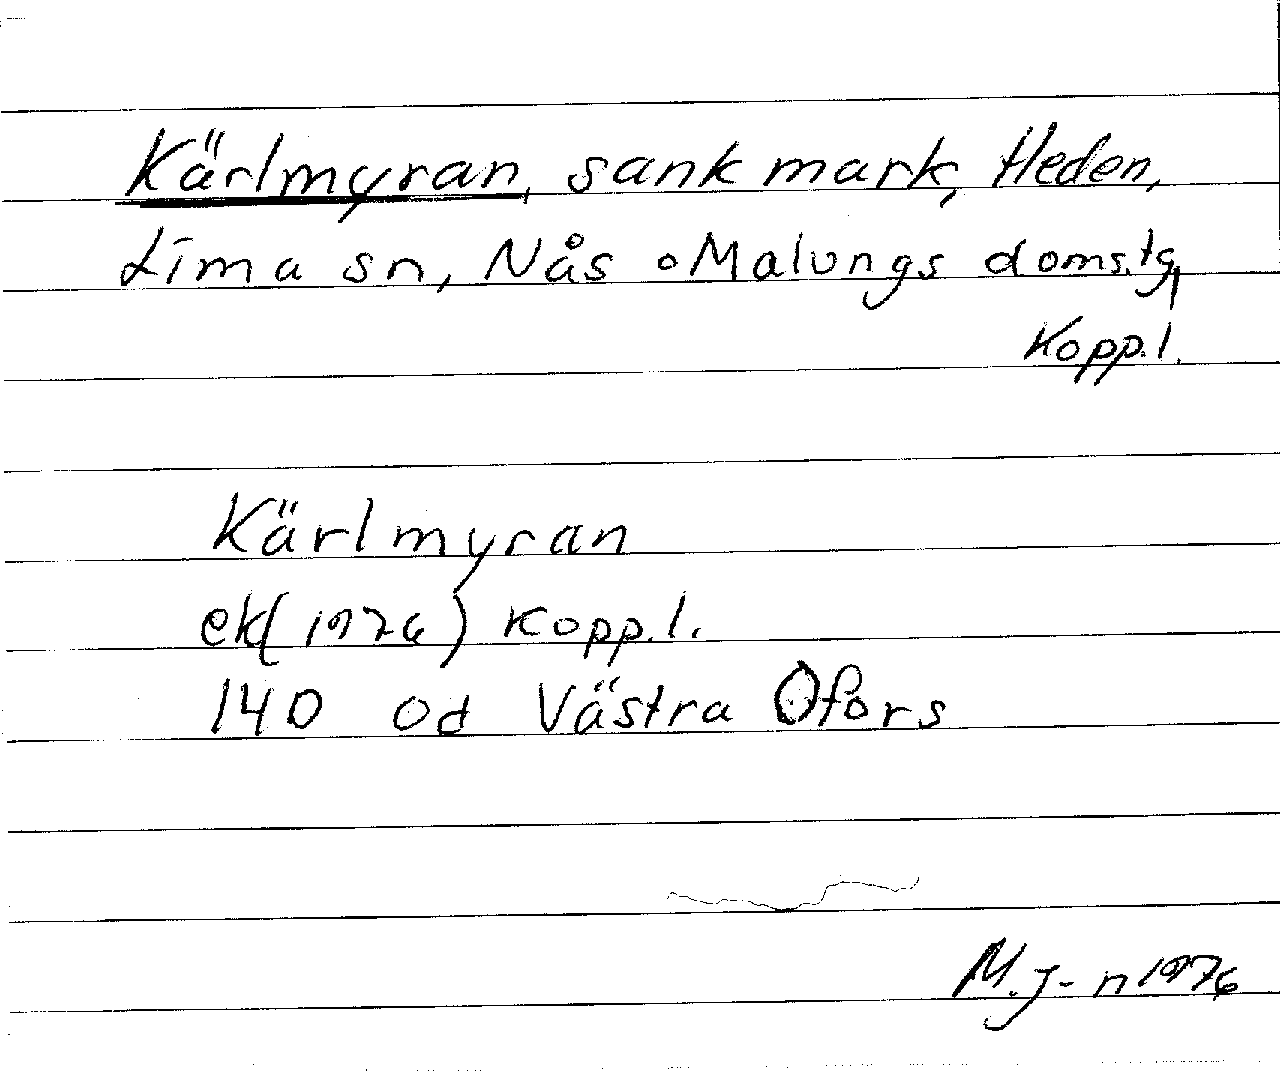 Kärlmyran, sank mark, Heden,
Lima sn, Nås o Malungs doms.tg,
Kopp.l.
Kärlmyran
ek(1976) Kopp.l.
140 Od Västra Ofors
M.J-n 1976